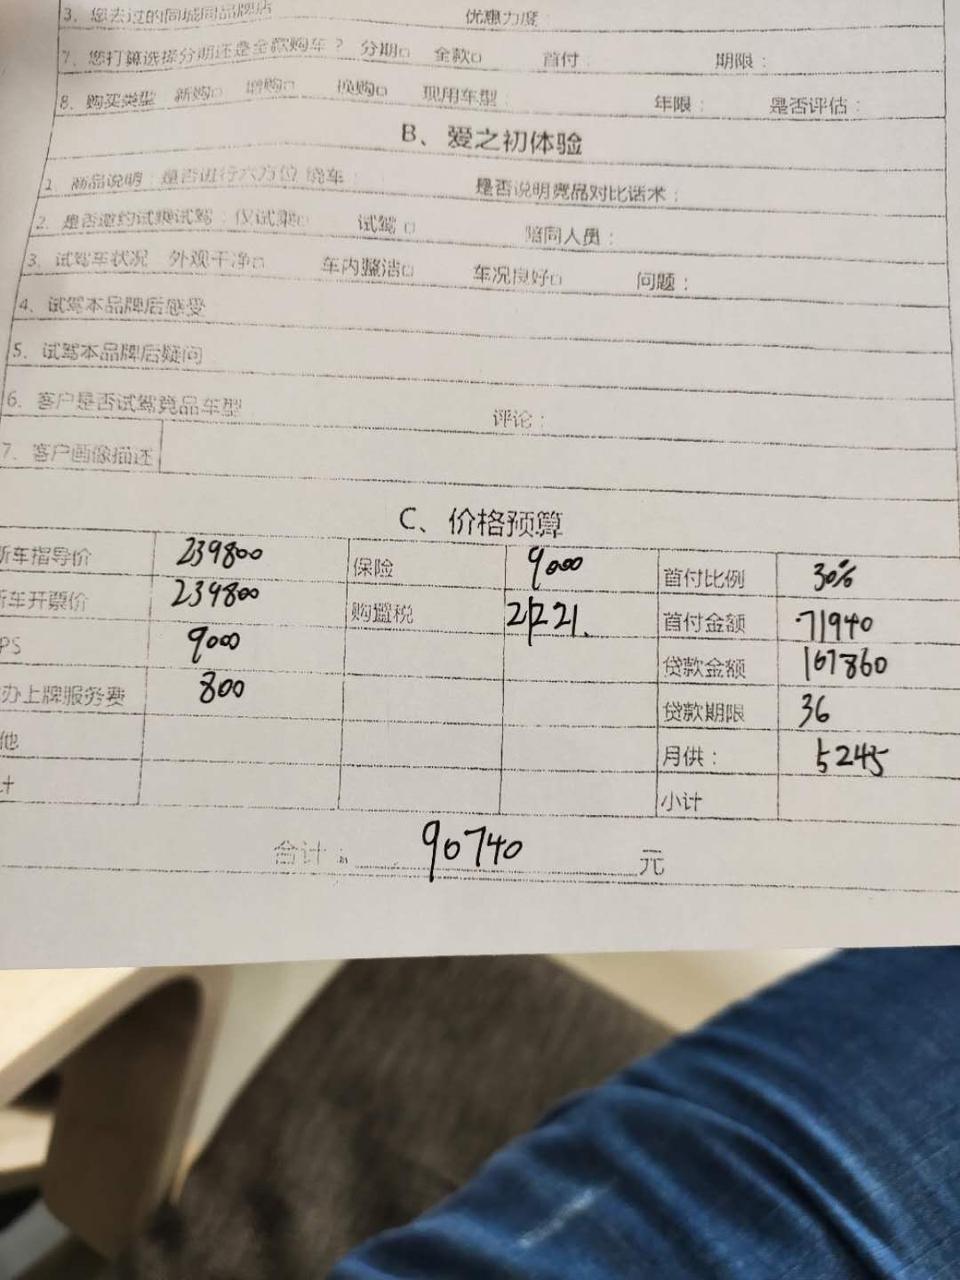 3、您去过的同城同品牌店 优惠力度：
7、您打算选择分期还是全款购车？ 分期□ 全款□ 首付： 期限：
8、购买类型 新购□ 增购□ 换购□ 现用车型： 年限： 是否评估：
B、爱之初体验
1、商品说明：是否进行六方位绕车： 是否说明竞品对比话术：
2、是否邀约试乘试驾：仅试乘□ 试驾□ 陪同人员：
3、试驾车状况 外观干净□ 车内整洁□ 车况良好□ 问题：
4、试驾本品牌后感受
5、试驾本品牌后疑问
6、客户是否试驾竞品车型 评论：
7、客户画像描述
C、价格预算
新车指导价 239800 保险 9000 首付比例 30%
新车开票价 239800 购置税 21221. 首付金额 71940
PS 9000 贷款金额 167860
办上牌服务费 800 贷款期限 36
他 月供： 5245
计 小计
合计： 90740 元